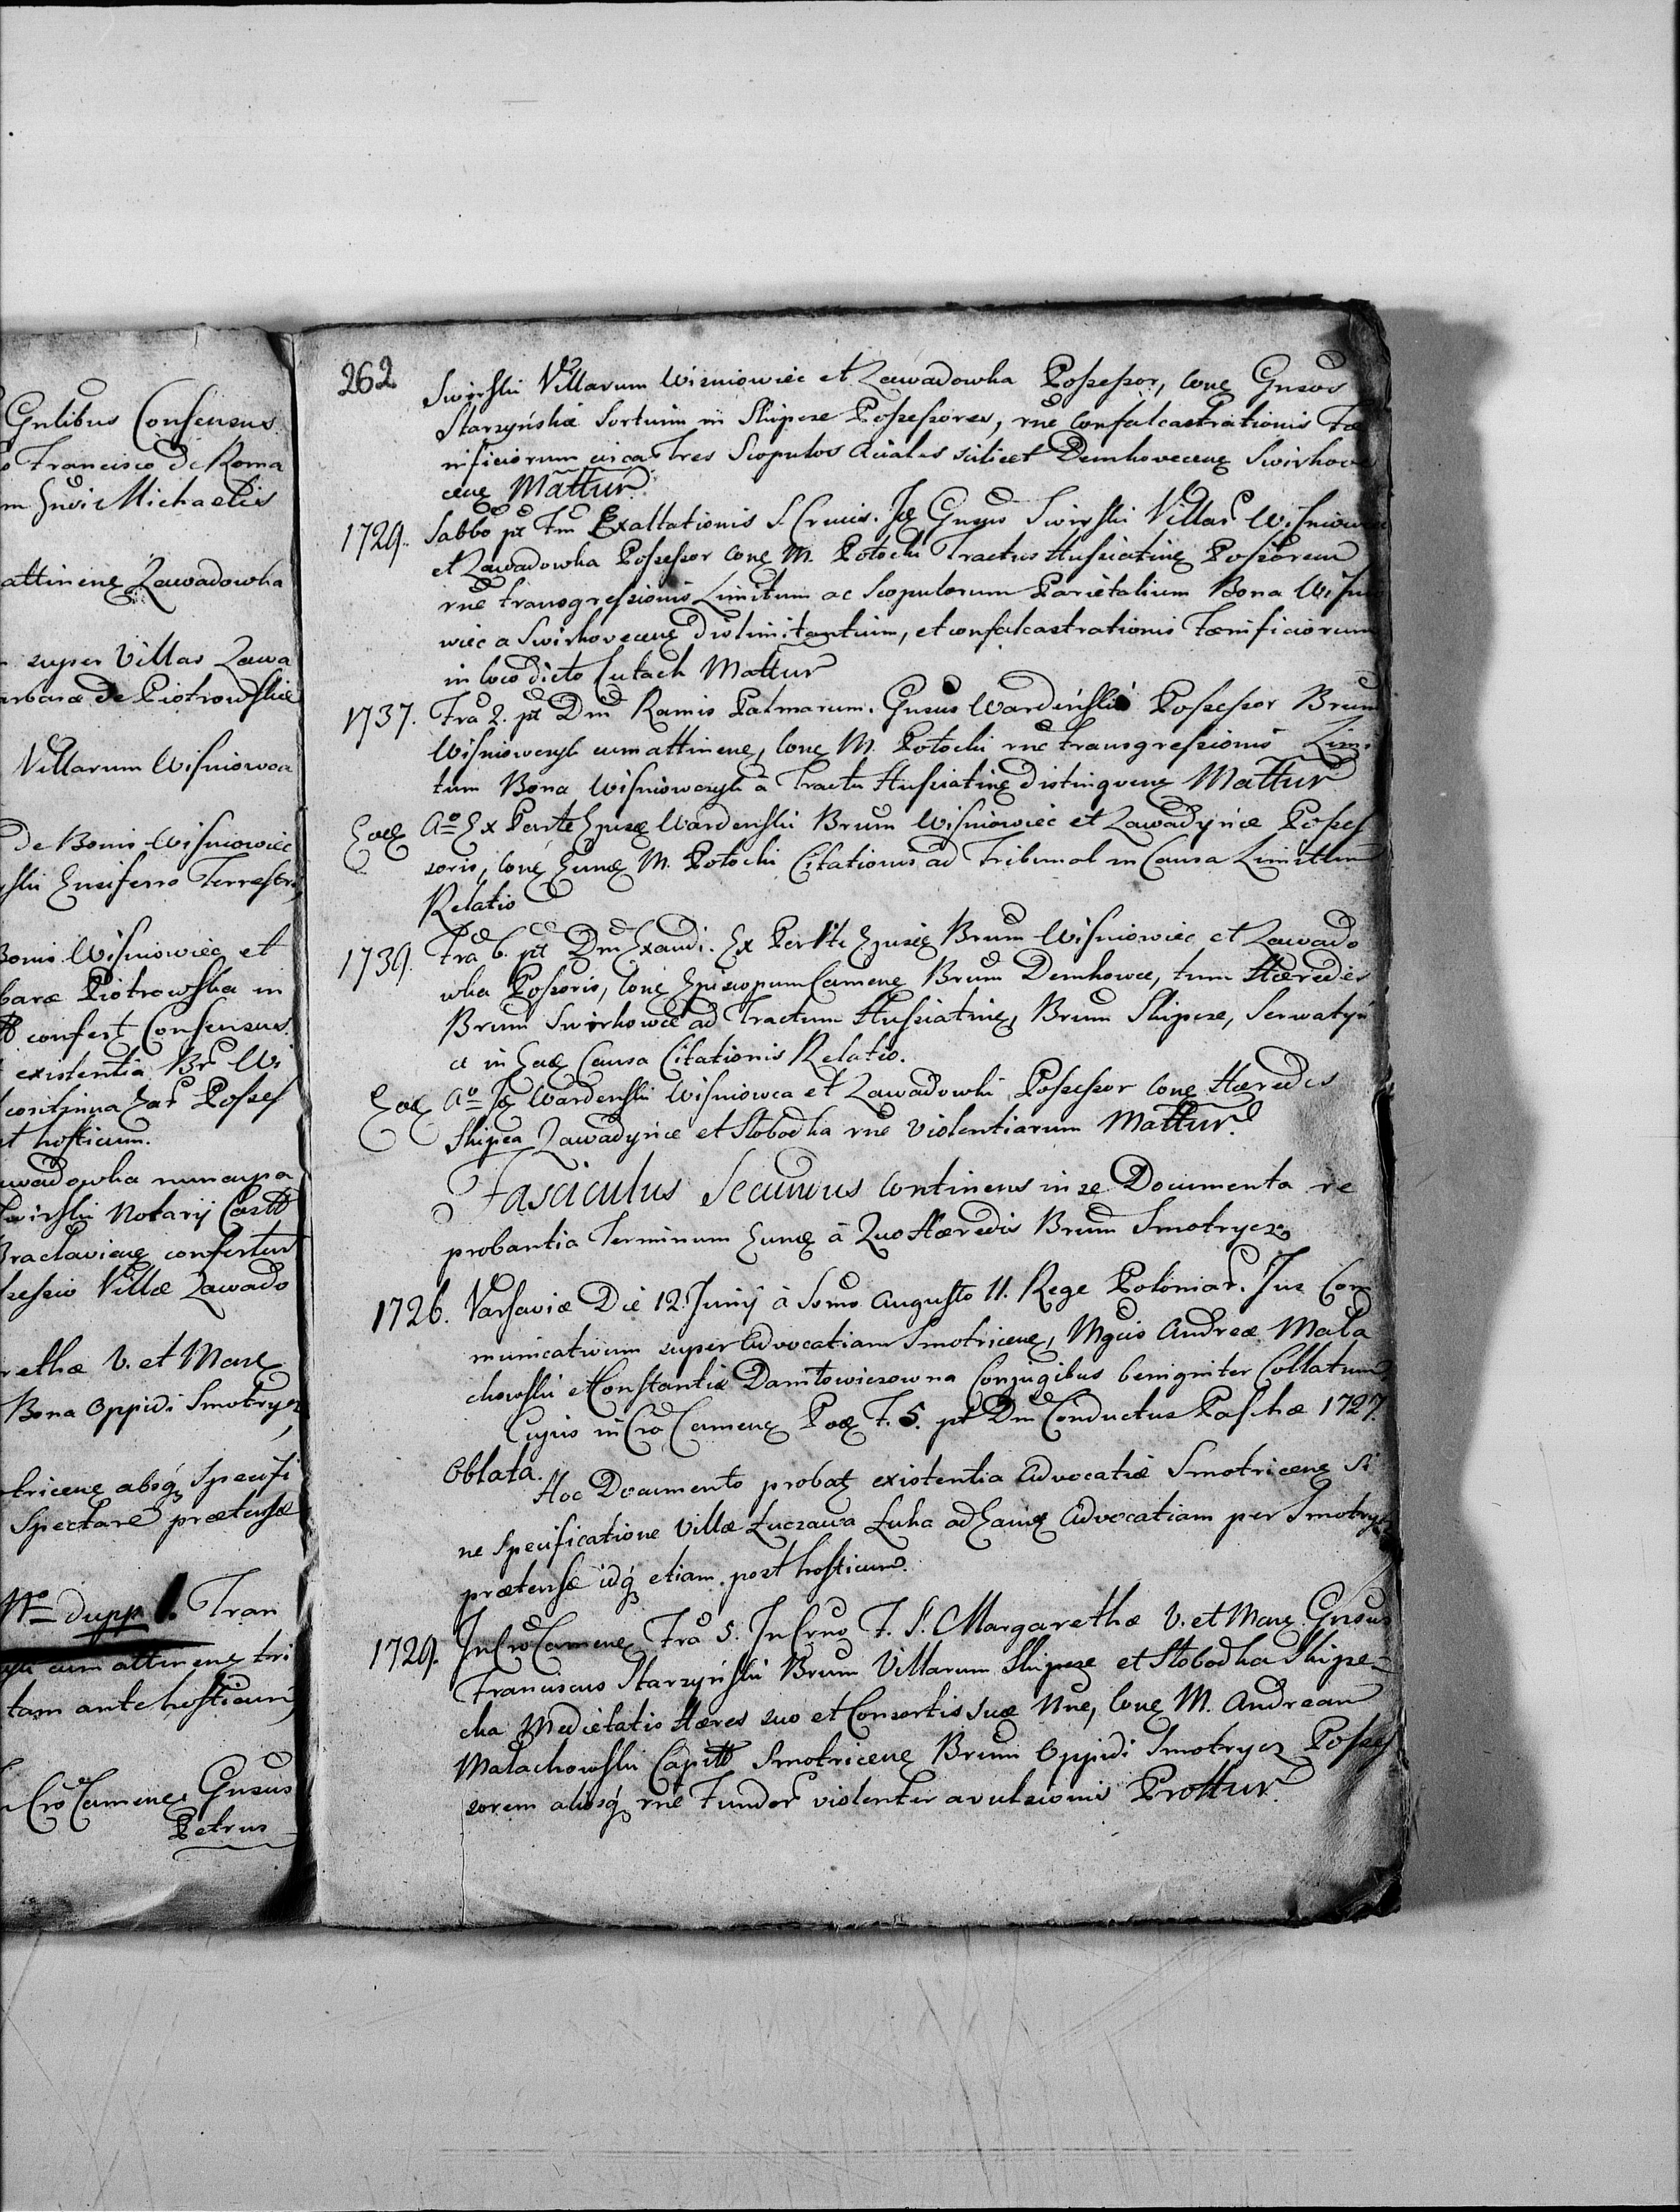 Gnlibus Consensus
o Francisco de Roma
m Gnsi Michaelis
attinene Zawadowka
super Villas Zawa
arbaræ de Piotrowskie
Villarum Wisniowca
De Bonis Wisniowiec
yski Ensifero Terrestri
Bonis Wisniowiec et
baræ Piotrowska in
confert Consensus
existentia Br Wi
continua Ear Posses
t hosticum.
awadowka nuncupa
Swirski Notarij Castr
Braclaviene confertur
ssessio Villæ Zawado
rethæ V. et Mare
Bona Oppidi Smotrycz,
tricene absq specifi
Spectare prætensæ
No dupp 1. Tran
cum attinene tri
tam ante hosticum
Cro Camene Gnsus
Petrus
262
Swirski Villarum Wisniowiec et Zawadowka Possessor, cone Gnsos
Starzyńskie Sortium in Skipcze Possessores, rne confalcastrationis Fæ
nificiorum circa Tres Scopulos Aciales scilicet Demkovecene Swirkove
cene Mattur
1729. Sabbo pt Fm Exaltationis S. Crucis. Je Gnsus Swirski Villar Wisniowiec
et Zawadowka Possessor cone M. Potocki Tractus Husiatine Possorem
rne transgressionis Limitum ac Scopulorum Parietalium Bona Wisnio
wiec a Swirkovecene dislimitantium, et confalcastrationis Fænificiorum
in loco dicto Lutach Mattur
1737. Fra 2. pt Dm Ramis Palmarum. Gnsus Wardeński Possessor Brum
Wisniowczyk cum attinene, cone M. Potocki rne transgressionis Limi
tum Bona Wisniowczyk à Tractu Husiatine distinguene Mattur
Eoe Ao Ex Parte Ejusde Wardenski Brum Wisniowiec et Zawadyńce Posses
soris, cone Eunde M. Potocki Citationis ad Tribunal in Causa Limitum
Relatio
1739. Fra 6. pt Dm Exaudi. Ex Parte Ejusde Brum Wisniowiec et Zawado
wka Possoris, cone Episcopum Camene Brum Demkowce, tum Hæredes
Brum Swirkowce ad Tractum Husiatine, Brum Skipcze, Serwatyń
ce in Eade Causa Citationis Relatio.
Eoe Ao Je Wardenski Wisniowca et Zawadowki Possessor cone Hæredes
Skipca Zawadyńce et Slobodka rne violentiarum Mattur.
Fasciculus Secundus continens in se Documenta re
probantia Terminum Eunde à Quo Hæredis Brum Smotrycz
1726. Varsaviæ Die 12. Junij à Srmo Augusto II. Rege Poloniar. Jus Com
municativum super Advocatiam Smotricene, Mgcis Andreæ Mala
chowski et Constantiæ Daniłowiczowna Conjugibus benigniter Collatum
Cujus in Cro Camene Poe F. 5. pt Dm Conductus Paschæ 1727.
Oblata.
Hoc Documento probatur existentia Advocatiæ Smotricene si
ne specificatione Villæ Łuczawa Łuka ad Eande Advocatiam per Smotrycz
prætensæ idq etiam post hosticum.
1729. In Cro Camene Fra 5. In Crno F. S. Margarethæ V. et Mare. Gnsus
Franciscus Starzyński Brum Villarum Skipcze et Slobodka Skipe-
cka Medietatis Hæres suo et Consortis suæ Nne, cone M. Andream
Malachowski Capitt Smotricene Brum Oppidi Smotrycz Posses
sorem aliosq rne Fundor violenter avulsionis Prottur.